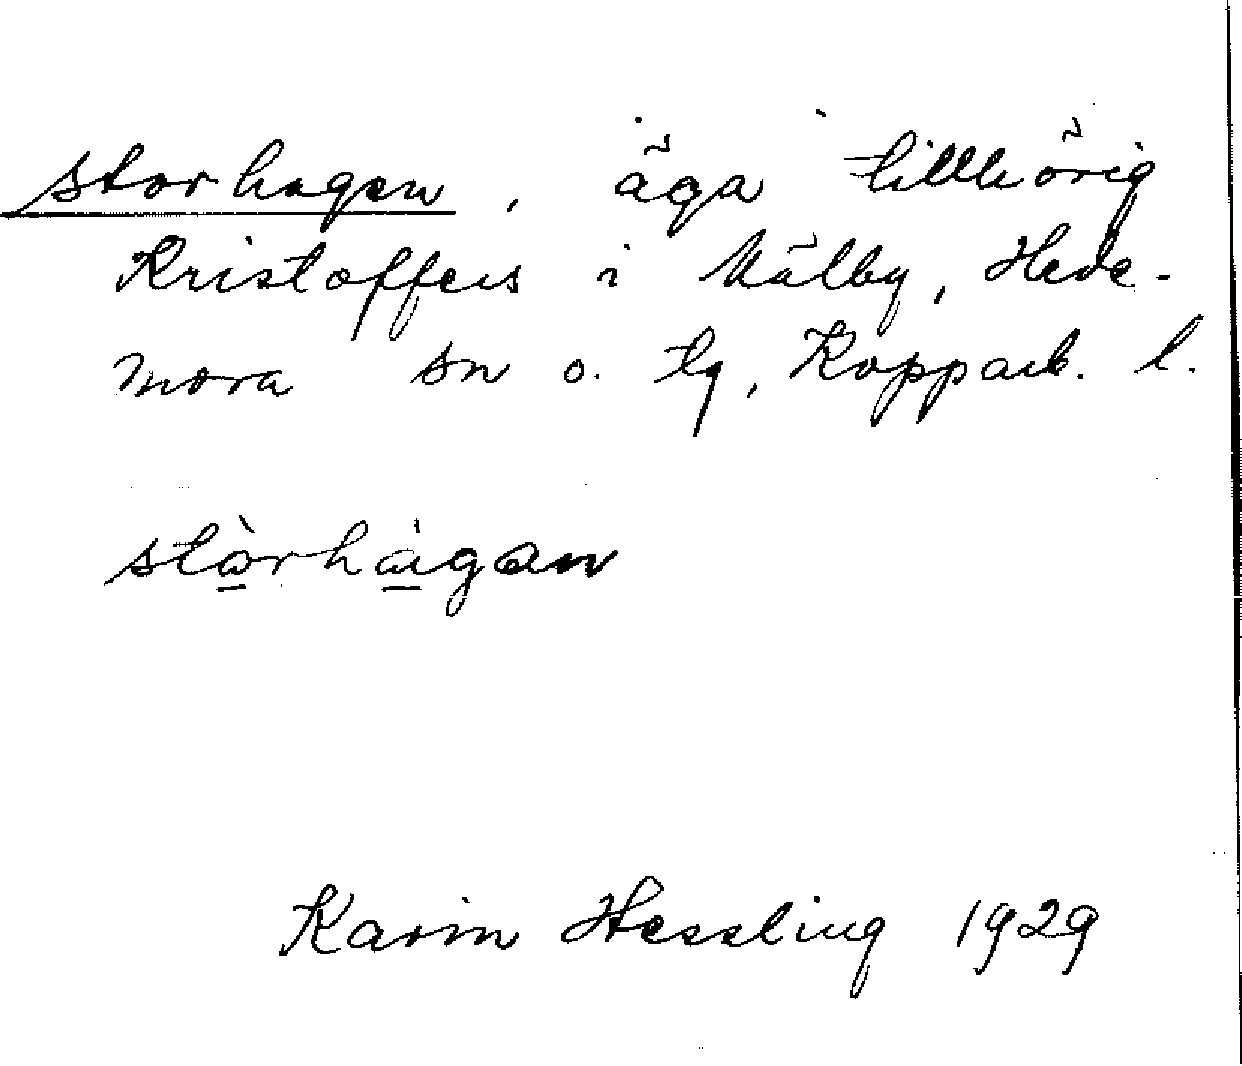 Storhagen, äga tillhörig
Kristoffers i Mälby, Hede-
mora sn o. tg, Kopparb. l.
stòrhàgan
Karin Hessling 1929